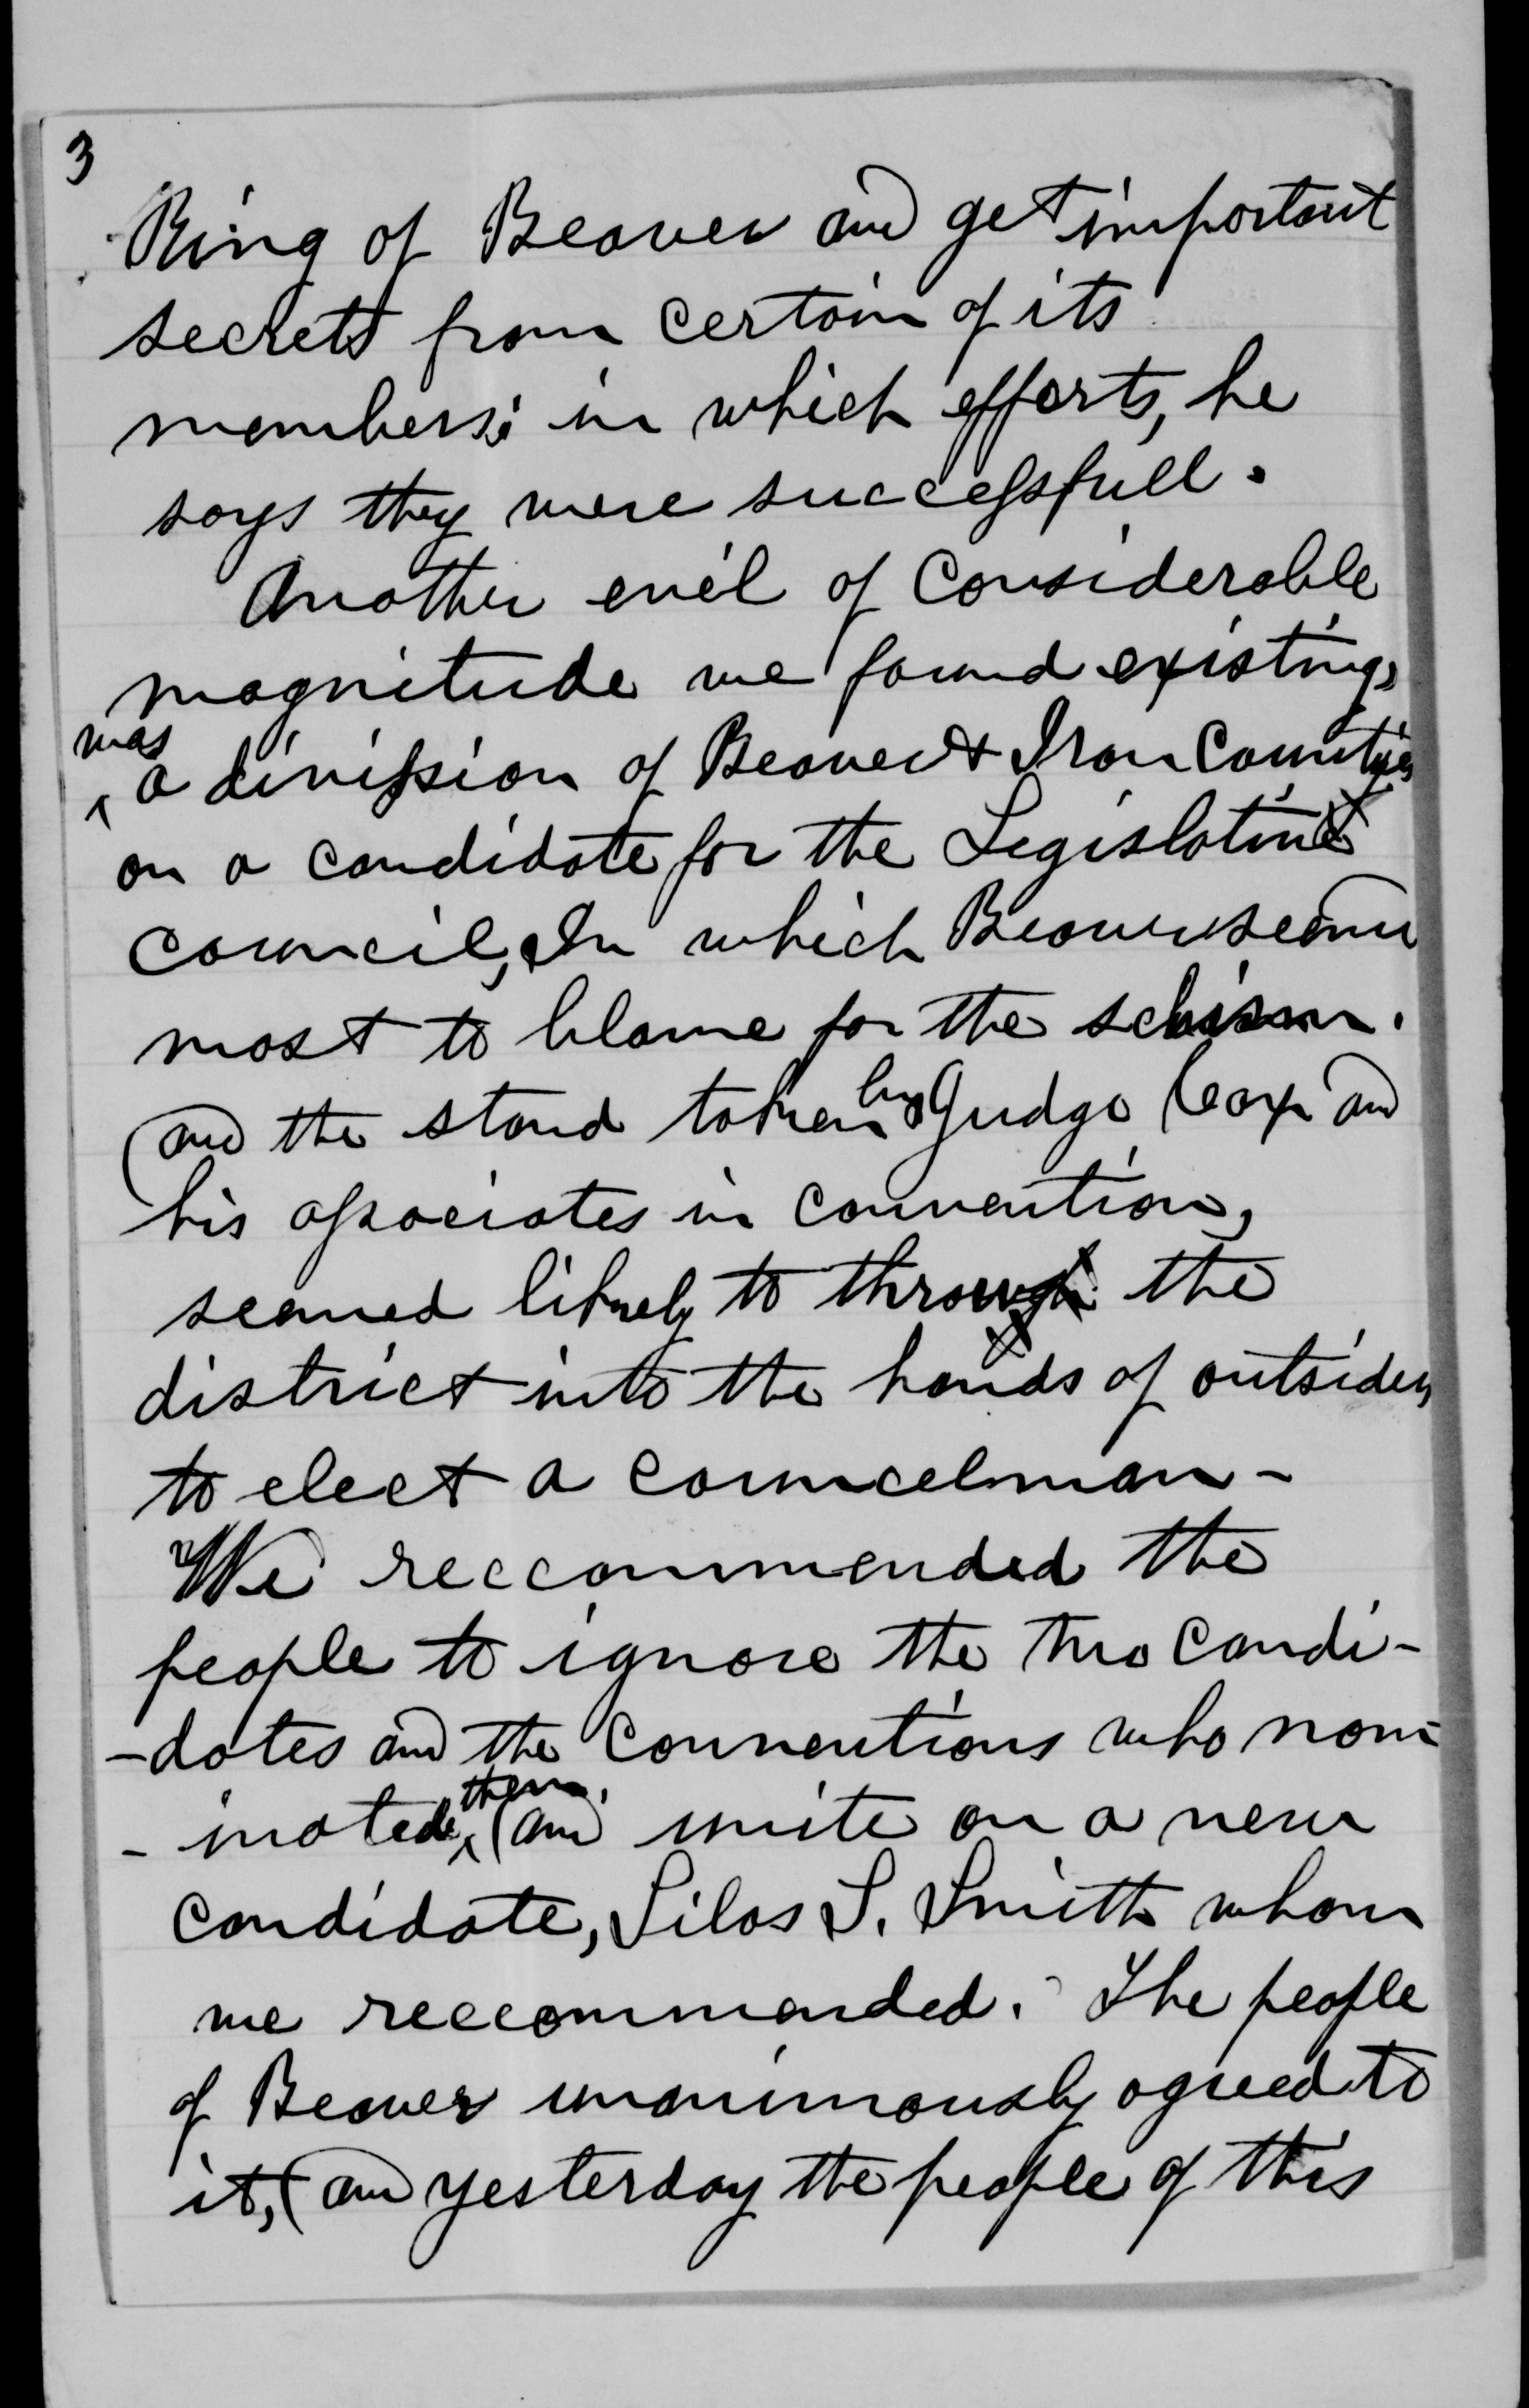 3
Ring of Beaver and get important
secrets from certain of its
members; in which efforts, he
says they were successfull.
Another evil of Considerable
magnitude we found existing,
was
a division of Beaver & Iron Counties
on a candidate for the Legislative
Council, In which Beaver seems
most to blame for the schism.
and the stand taken by Judge Cox and
his associates in Convention,
seemed likely to throw the
district into the hands of outsiders
to elect a councelman-
We reccommended the
people to ignore the two Candi-
-dates and the Conventions who nom-
-inated them, and unite on a new
candidate, Silas S. Smith whom
we reccommended. The people
of Beaver unanimously agreed to
it, and yesterday the people of this